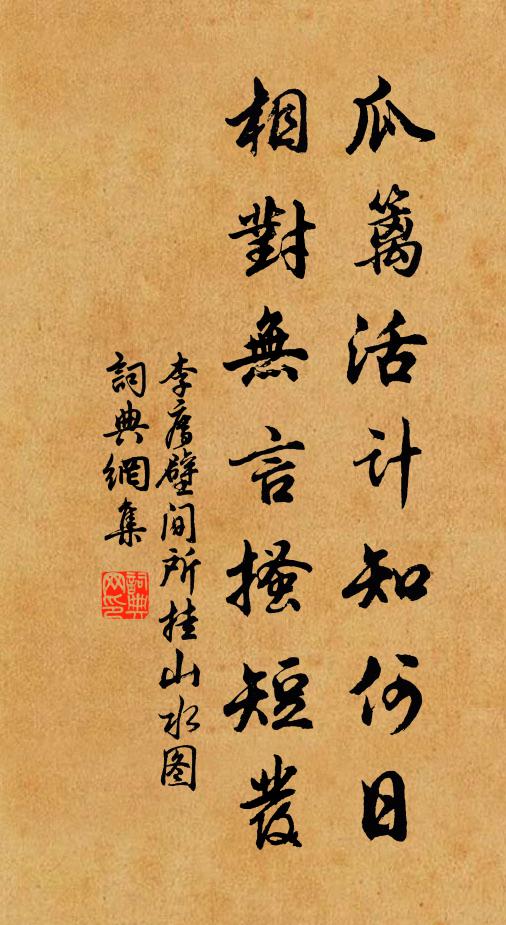 瓜篱活计知何日
相對無言搔短發
李膺壁间所挂山水图
詞典網集
詞典网印